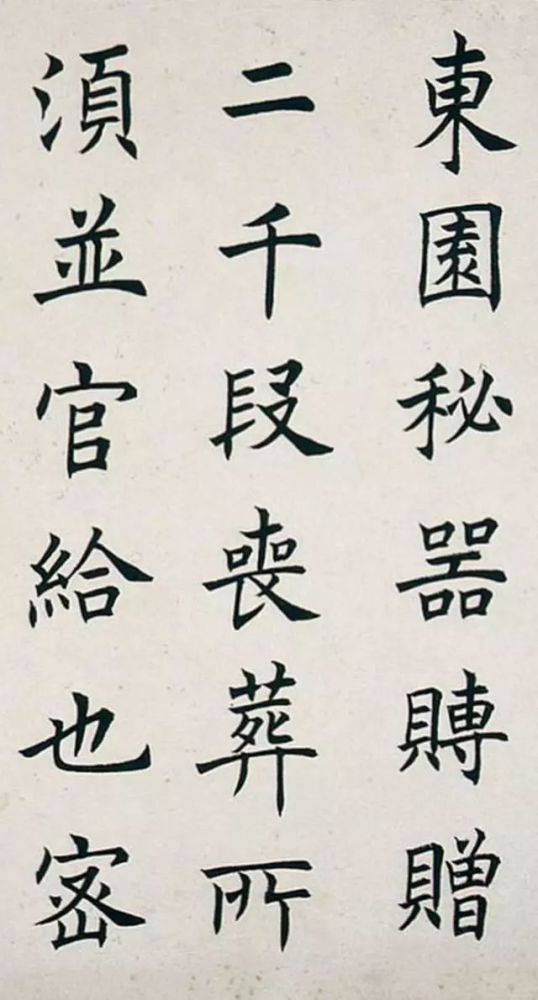 東園秘噐賻贈
二千段喪葬所
須並官給也密